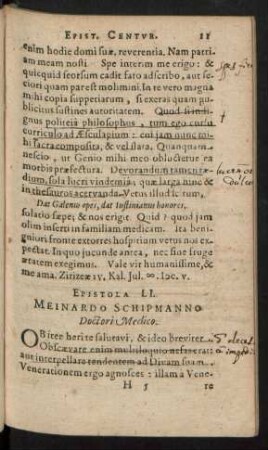 EPIST. CENTUR.
enim hodie domi suæ, reverentia. Nam patri-
am meam nosti. Spe interim me erigo: &
quicquid seorsum cadit fato adscribo, aut se-
ciori quam par est molimini. In te vero magna
mihi copia suppetiarum, si exeras quam pu-
blicitus sustines autoritatem. Quod si mi-
gnus politeia philosophus, tum ego
curriculo ad Æsculapium: cui jam nunc mi-
hi sacra composita, & vel stata. Quanquam
nescio, ut Genio mihi meo obluctetur ea
morbis præfectura. Devorandum tamen tæ-
dium, sola lucri vindemia, quæ larga nunc &
in thesauros acervanda. Verùm illud se tum,
Dat Galenus opes, dat Justinianus honores,
solatio sæpe; & nos erige. Quid? quod jam
olim inserti in familiam medicam. Ita beni-
gniori fronte extorres hospirium vetus nos ex-
pectat. Inquo jucunde antea, nec sine fruge
ætatem exegimus. Vale vir humanissime, &
me ama. Zitizeæ IV. Kal. Jul.
EPISTOLA LI.
MEINARDO SCHIPMANNO
Doctori Medico.
OBiter heri te salutavi, & ideo breviter.
Obscævare enim multiloquio nefas erat:
aut interpellare tendentem ad Divam suam.
Venerationem ergo agnosces: illam a Vene-
H 5 re